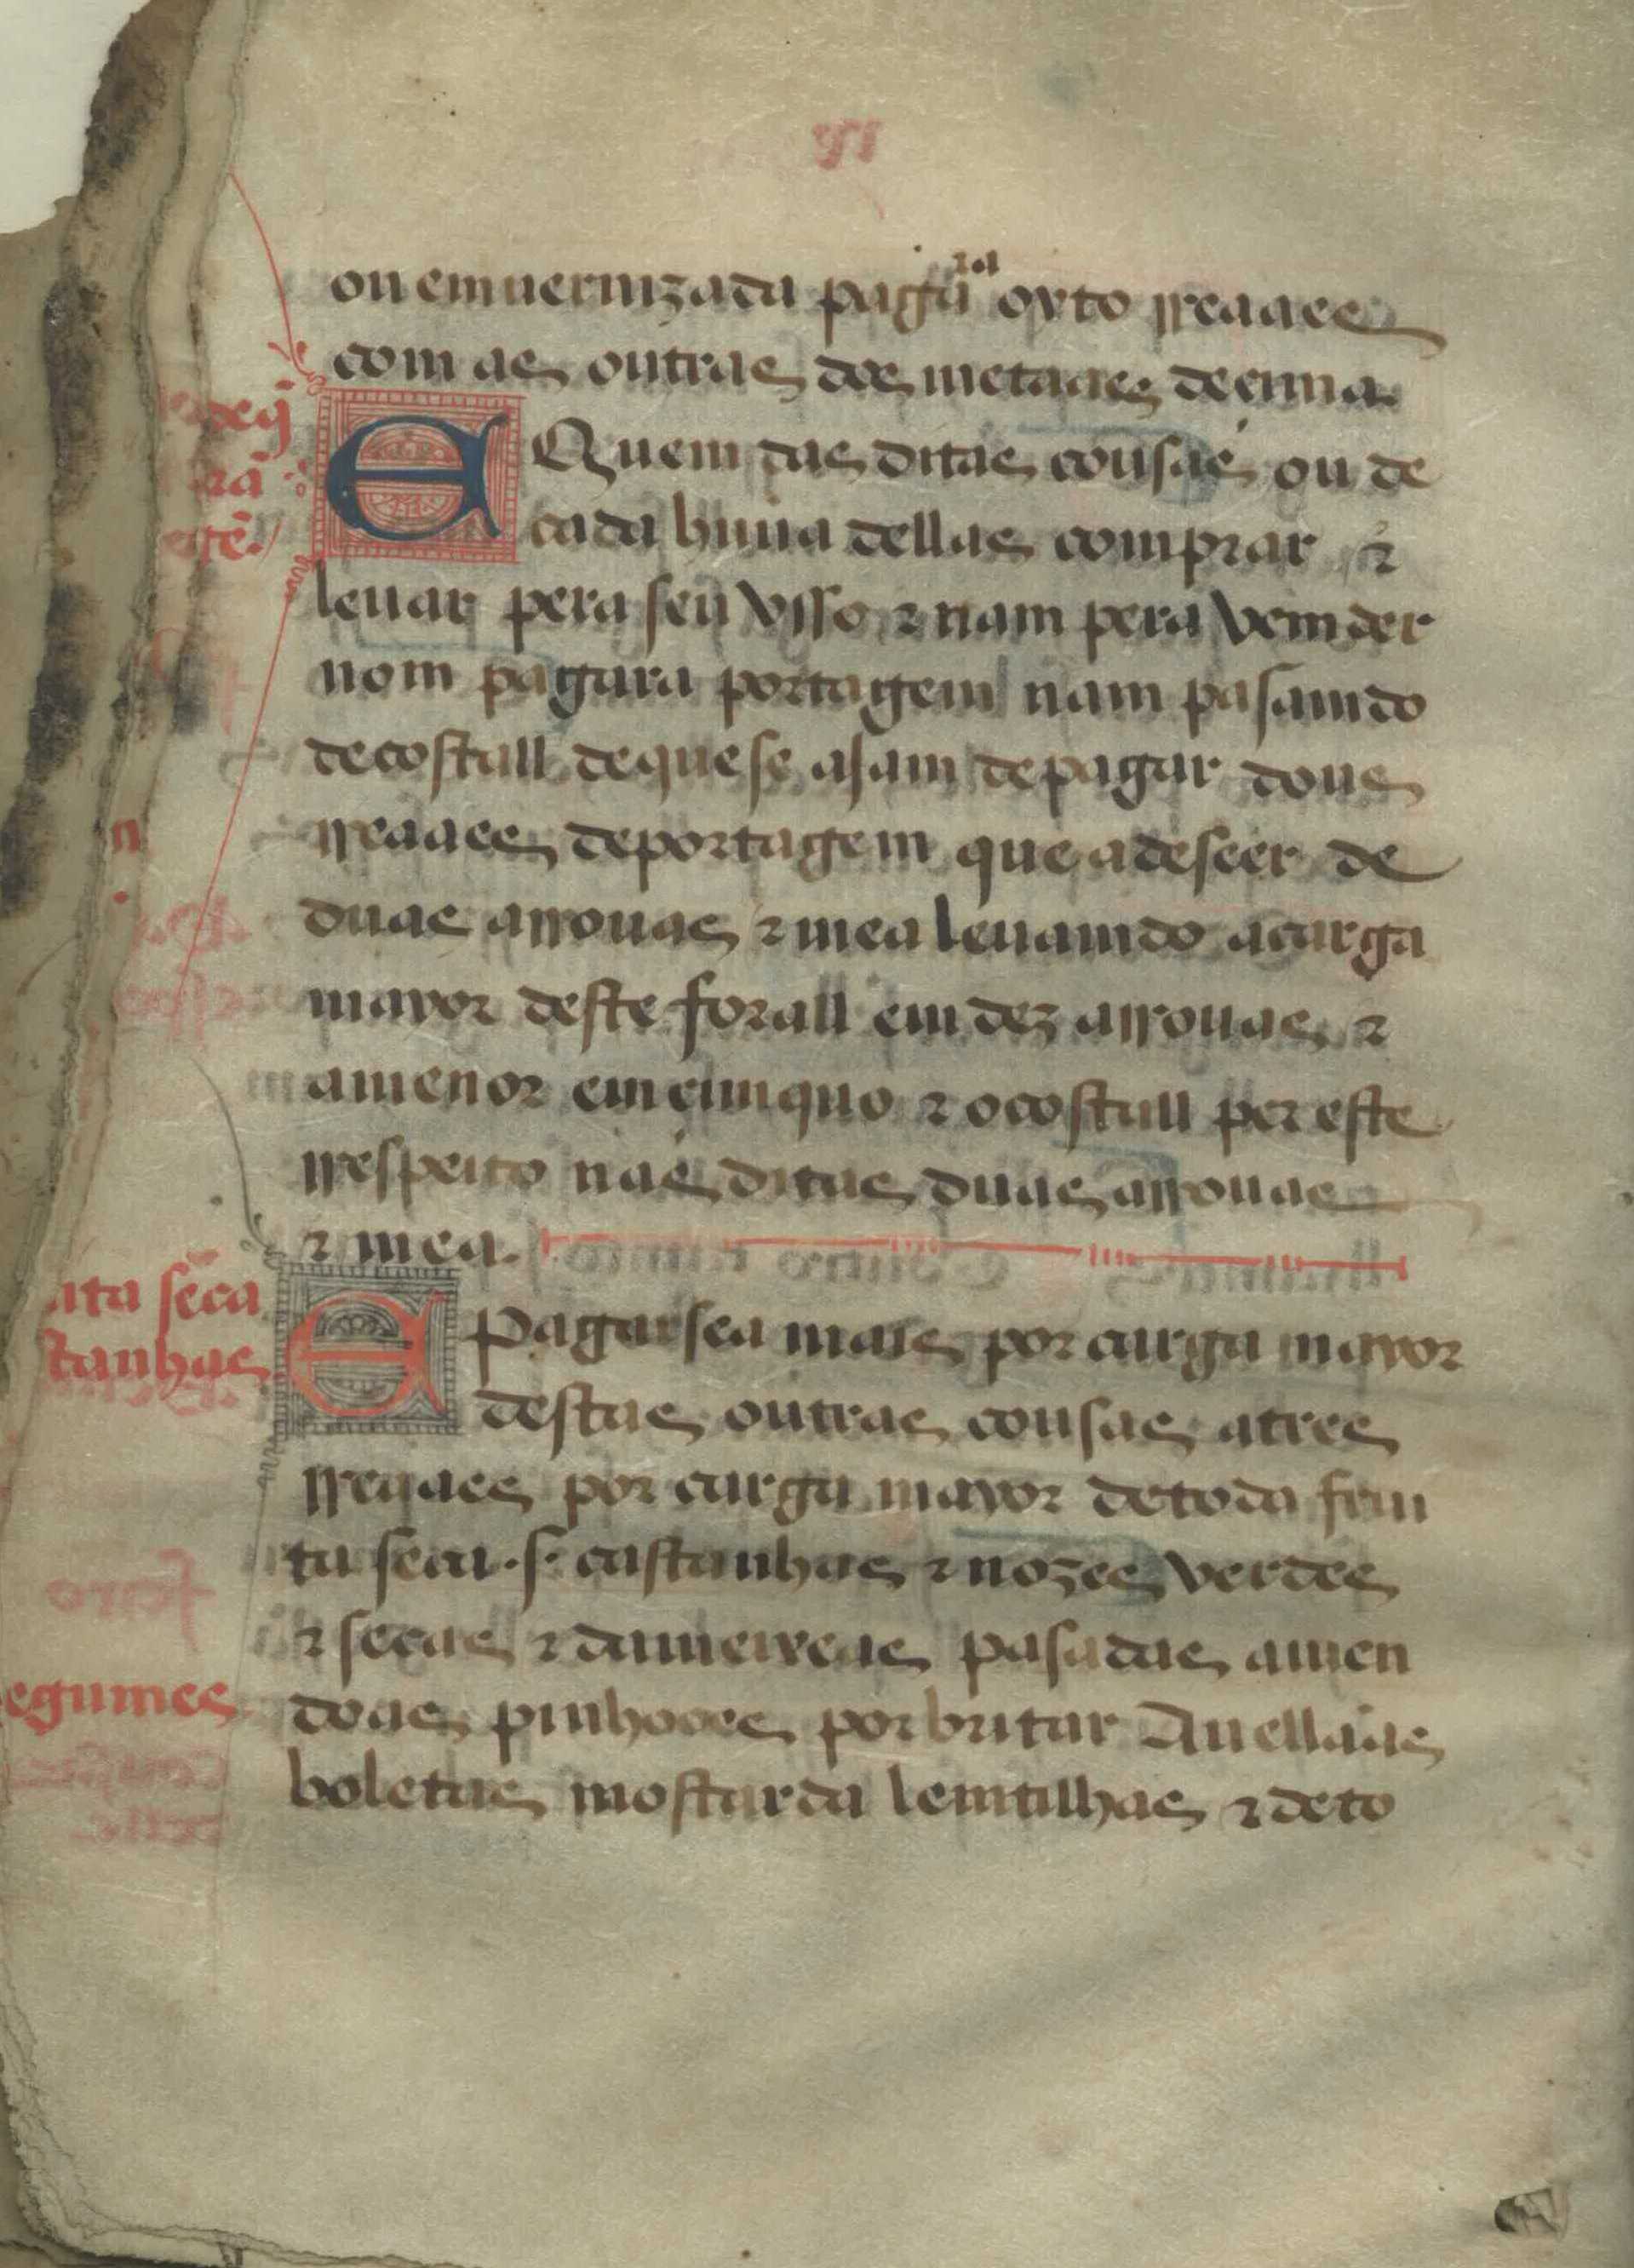 ou emuernizada pagaraa oyto rreaaes
com as outras dos metaaes de cima.
E Quem das ditas cousas ou de
cada huũa dellas comprar ⁊
leuar pera seu vsso ⁊ nam pera vemder
nom pagara portagem nam pasamdo
de costall de que se aiam de pagar dous
rreaaes de portagem que a de seer de
duas arrouas ⁊ mea leuamdo a carga
mayor deste forall em dez arrouas ⁊
a menor em cimquo ⁊ o costall per este
rrespeito nas ditas duas arrouas
⁊ mea.
ita seca
tanhas
E Pagarsea mais por carga mayor
destas outras cousas a tres
rreaaes por carga mayor de toda frui
ta seca .s. castanhas ⁊ nozes verdes
⁊ secas ⁊ dameixeas pasadas amen
egumes
doas pinhoões por britar Auellaãs
boletas mostarda lemtilhas ⁊ de to